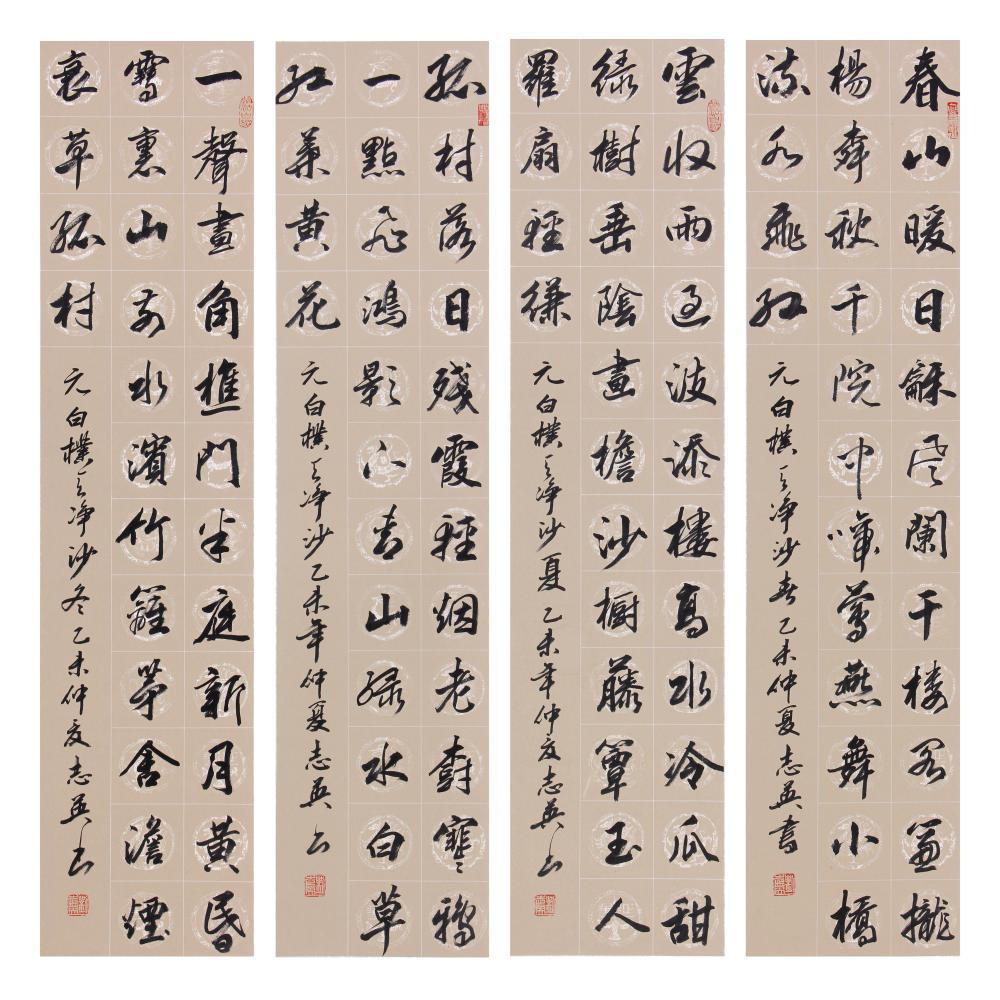 春山暖日龢風闌干楼阁簾攏
楊柳秋千院中啼鶯燕舞小橋
流水飛红
元白樸天净沙春乙未仲夏志英書
雲收雨過波添樓高水冷瓜甜
绿樹垂陰畫檐沙橱藤簟玉人
羅扇輕縑
元白樸天净沙夏乙未年仲夏志英书
孤村落日殘霞輕烟老樹寒鴉
一點飛鴻影下青山绿水白草
红葉黄花
元白樸天净沙乙未年仲夏志英书
一聲畫角樵門半庭新月黄昏
雪裏山前水濱竹籬茅舍澹煙
衰草孤村
元白樸天净沙冬乙未仲夏志英书